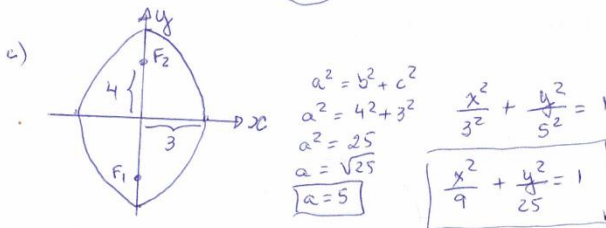 c)
y
F₂
4
x
3
F₁
a² = b² + c²
a² = 4² + 3²
a² = 25
a = √25
a = 5
x²/3² + y²/5² = 1
x²/9 + y²/25 = 1